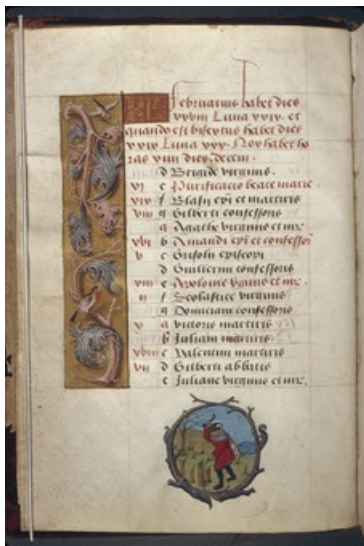 februarius habet dies
xxviii Luna xxix. et
quando est bisextus habet dies
xxix Luna xxx. Nox habet ho
ras viii dies decem.
d Brigide virginis
xi e Purificacio beate marie
xix f Blasii epi et martiris
viii g Gilberti confessoris
a Agathe virginis et mr
xvi b Amandi epi et confessor
v c episcopi
d Guillermi confessoris
e Apolonie virginis et mr
ii f Scolastice virginis
g confessoris
v a victoris martiris
b Juliani martiris
xviii c Valentini martiris
vii d Gilberti abbatis
e Juliane virginis et mr